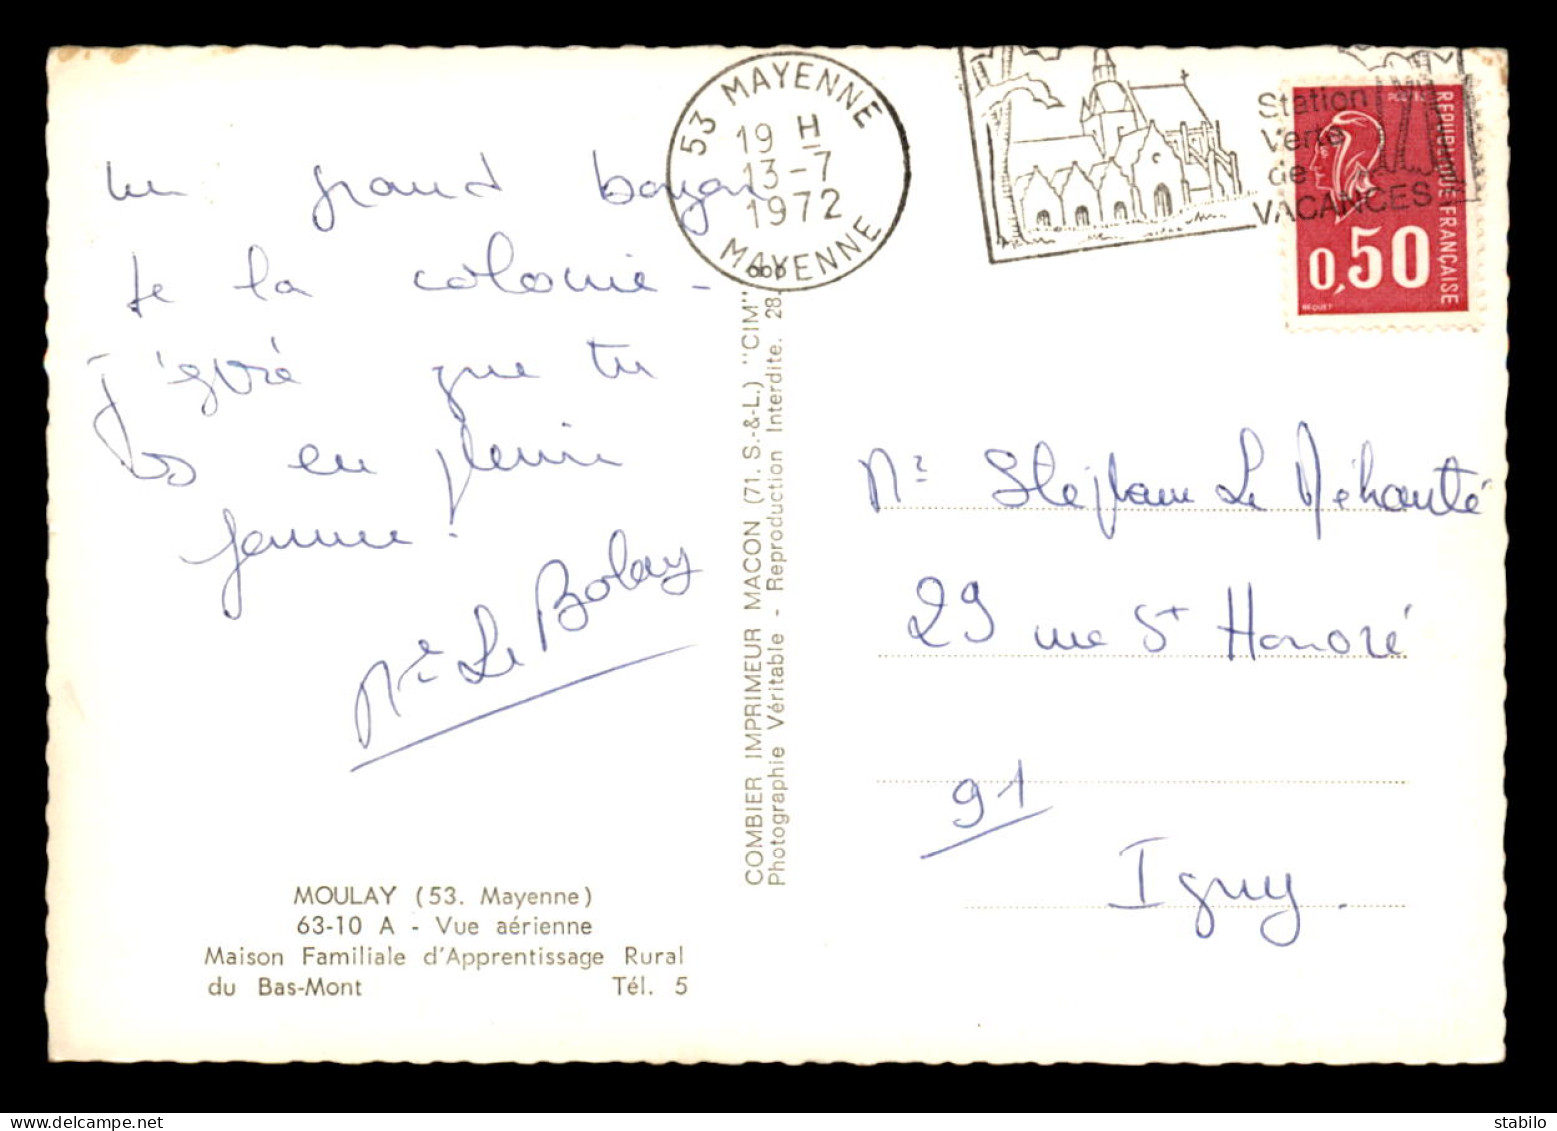 un grand bonjour
de la colonie -
J'espère que tu
es en pleine
forme !
Mr Le Bolay
MOULAY (53. Mayenne)
63-10 A - Vue aérienne
Maison Familiale d'Apprentissage Rural
du Bas-Mont Tél. 5
COMBIER IMPRIMEUR MACON (71. S.-&-L.) "CIM"
Photographie Véritable - Reproduction Interdite. 28.
53 MAYENNE
19 H
13-7
1972
MAYENNE
Station
Verte
de
VACANCES
POSTES
REPUBLIQUE FRANÇAISE
0,50
BEQUET
Mr Stéphane Le Méhauté
29 rue St Honoré
91
Igny.